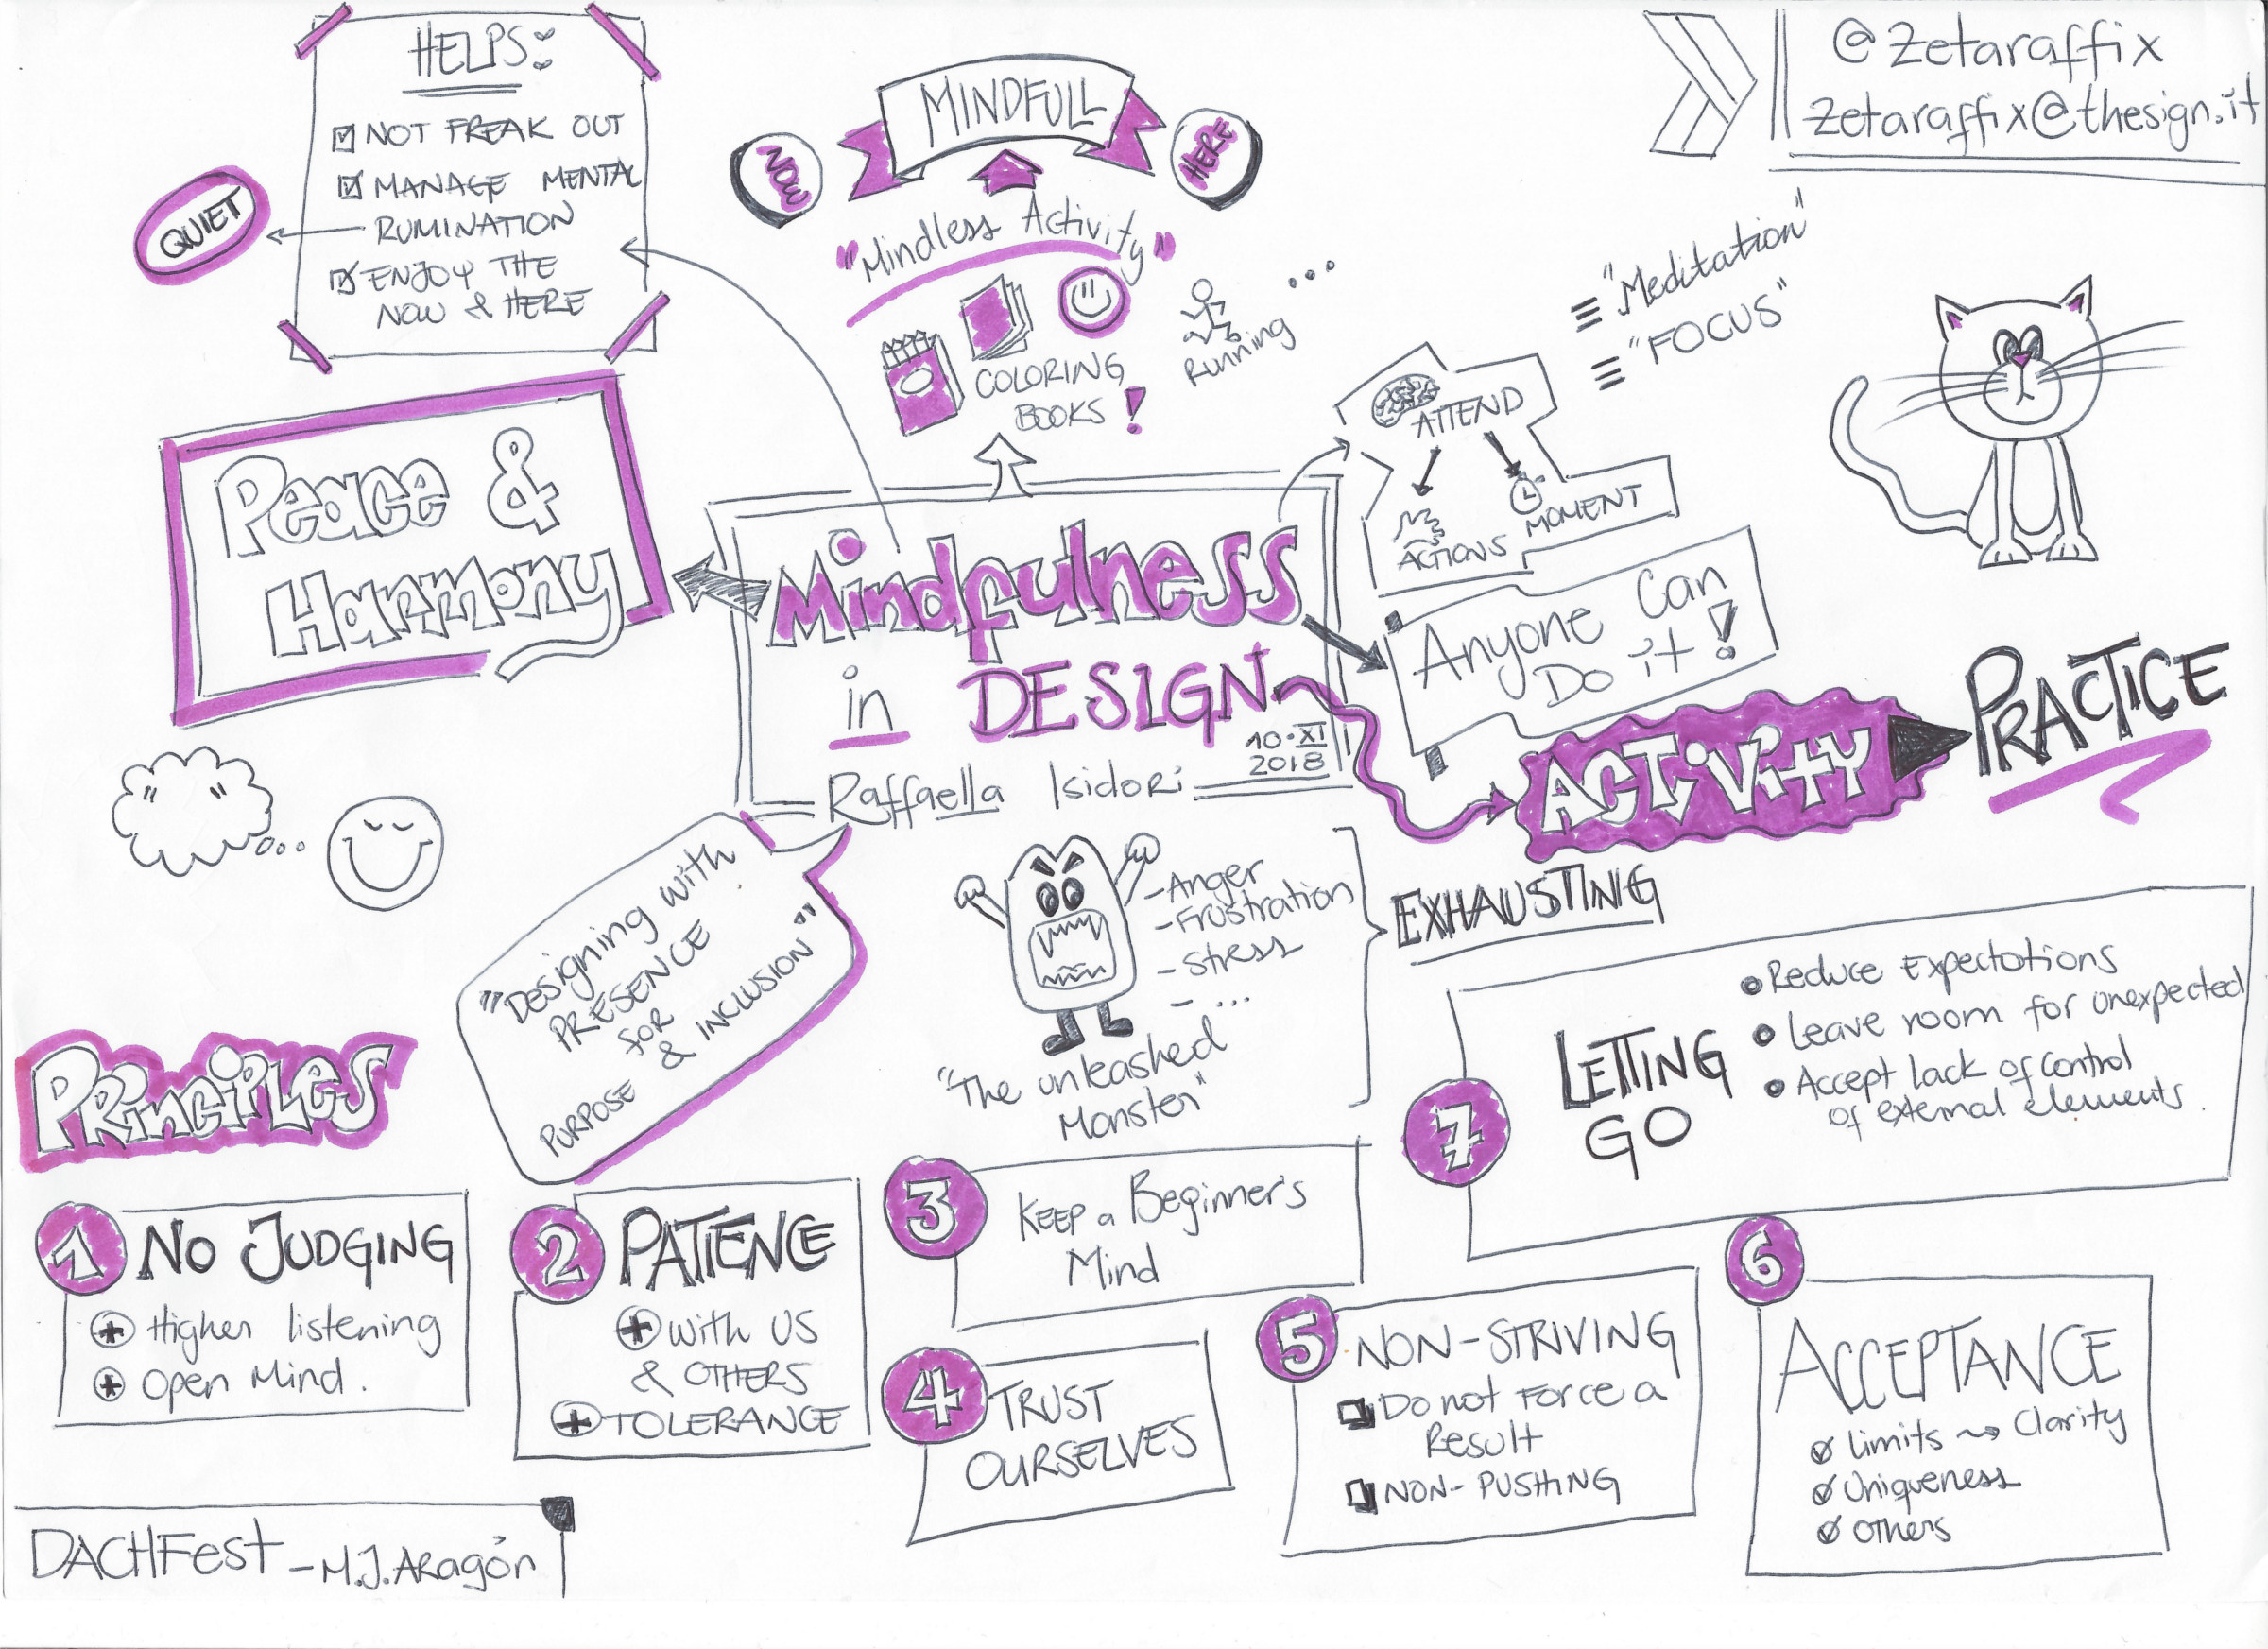 HELPS:
NOT FREAK OUT
MANAGE MENTAL
RUMINATION
ENJOY THE
NOW & HERE
QUIET
MINDFULL
NOW
HERE
"Mindless Activity"
COLORING
BOOKS!
Running
...
@Zetaraffix
zetaraffix@thesign.it
"Meditation"
"FOCUS"
ATTEND
ACTIONS
MOMENT
Peace &
Harmony
Mindfulness
in DESIGN
10·XI
2018
Raffaella Isidori
Anyone Can
Do it!
ACTIVITY
PRACTICE
"Designing with
PRESENCE
for
PURPOSE & INCLUSION"
- Anger
- Frustration
- Stress
- ...
"The unleashed
Monster"
EXHAUSTING
PRINCIPLES
1 NO JUDGING
Higher listening
Open Mind.
2 PATIENCE
with US
& OTHERS
TOLERANCE
3 KEEP a Beginner's
Mind
4 TRUST
OURSELVES
5 NON-STRIVING
Do not Force a
Result
NON-PUSHING
6
ACCEPTANCE
Limits ~> Clarity
Uniqueness
Others
7 LETTING
GO
Reduce Expectations
Leave room for unexpected
Accept lack of control
of external elements.
DACHFest - M.J.Aragón